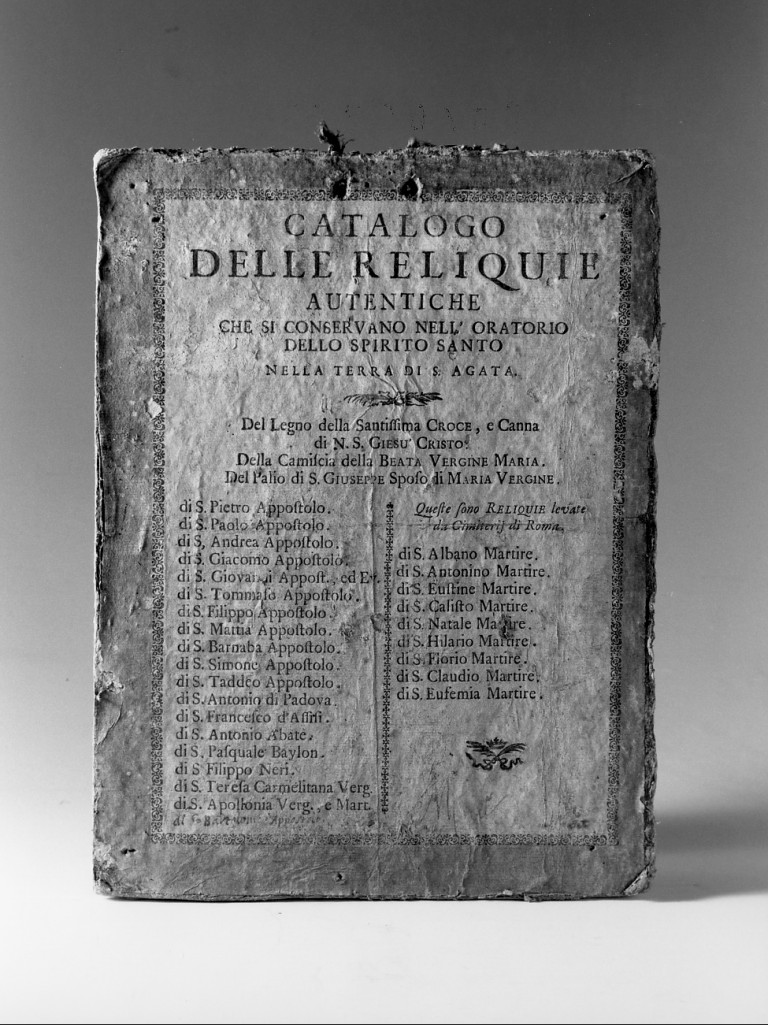 CATALOGO
DELLE RELIQUIE
AUTENTICHE
CHE SI CONSERVANO NELL' ORATORIO
DELLO SPIRITO SANTO
NELLA TERRA DI S. AGATA.
Del Legno della Santiſſima CROCE, e Canna
di N. S. GIESU' CRISTO.
Della Camiſcia della BEATA VERGINE MARIA.
Del Palio di S. GIUSEPPE Spoſo di MARIA VERGINE.
di S. Pietro Appoſtolo.
di S. Paolo Appoſtolo.
di S. Andrea Appoſtolo.
di S. Giacomo Appoſtolo.
di S. Giovanni Appoſt., ed Ev.
di S. Tommaſo Appoſtolo.
di S. Filippo Appoſtolo.
di S. Mattia Appoſtolo.
di S. Barnaba Appoſtolo.
di S. Simone Appoſtolo.
di S. Taddeo Appoſtolo.
di S. Antonio di Padova.
di S. Franceſco d'Aſſiſi.
di S. Antonio Abate.
di S. Paſquale Baylon.
di S Filippo Neri.
di S. Tereſa Carmelitana Verg.
di S. Apollonia Verg., e Mart.
Queſte ſono RELIQUIE levate
da Cimiterij di Roma.
di S. Albano Martire.
di S. Antonino Martire.
di S. Euſtine Martire.
di S. Caliſto Martire.
di S. Natale Martire.
di S. Hilario Martire.
di S. Florio Martire.
di S. Claudio Martire.
di S. Eufemia Martire.